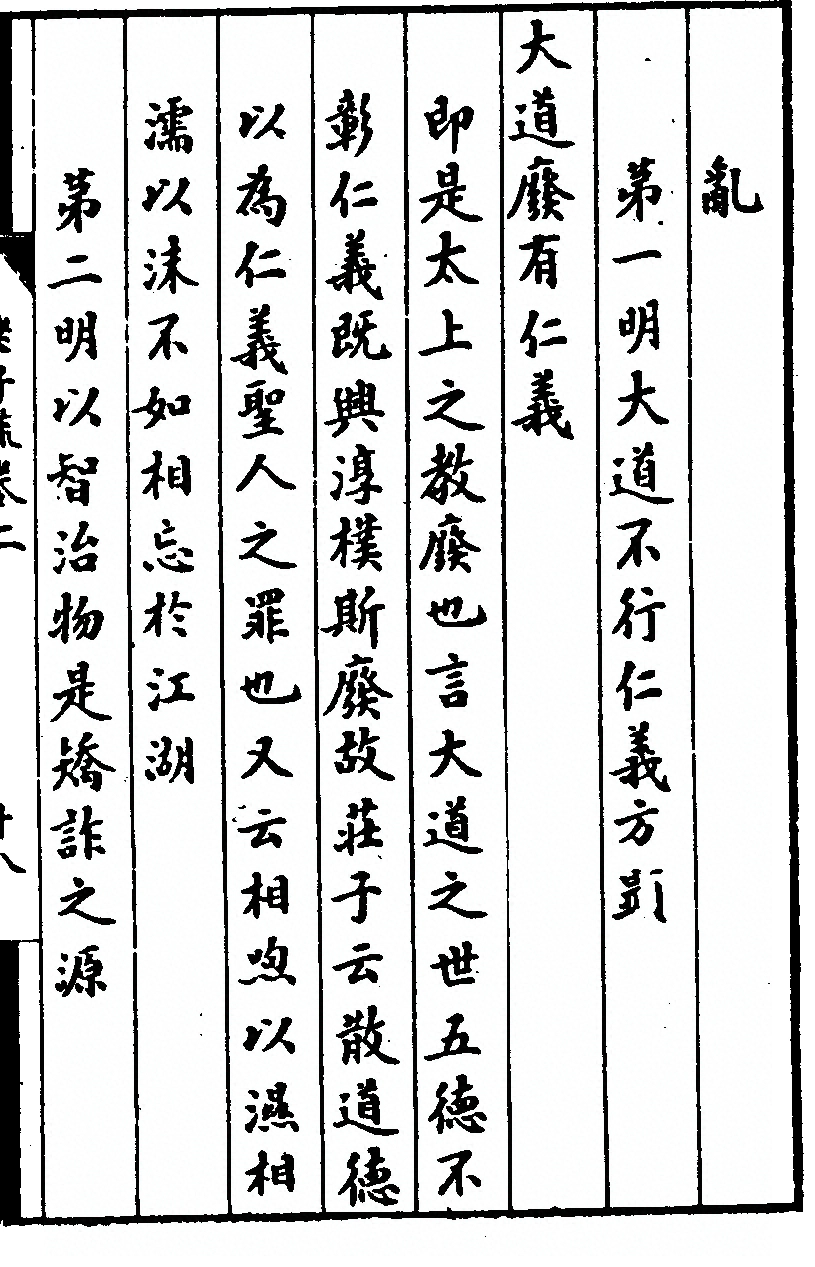 亂
第一明大道不行仁義方顯
大道廢有仁義
即是太上之教廢也言大道之世五德不
彰仁義既興淳樸斯廢故莊子云散道德
以為仁義聖人之罪也又云相呴以濕相
濡以沫不如相忘於江湖
第二明以智治物是矯詐之源
老子疏卷二 十八